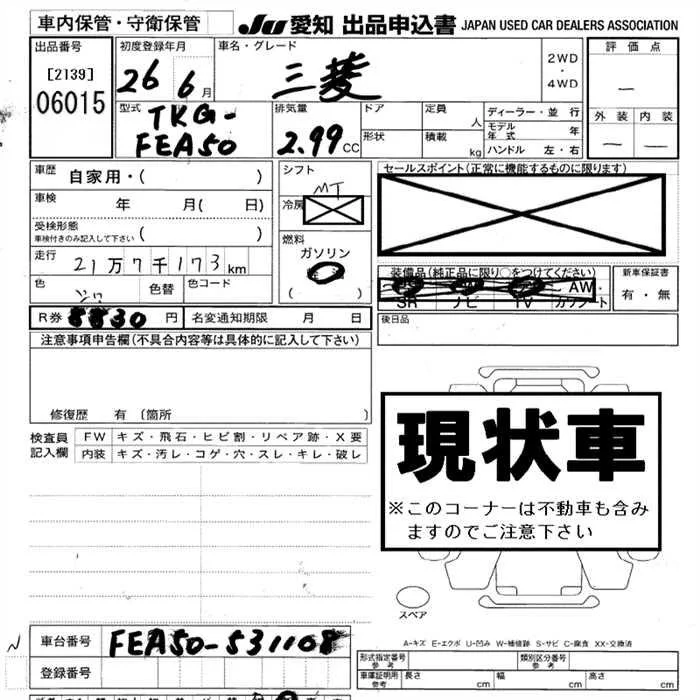 車内保管・守衛保管 JU 愛知 出品申込書 JAPAN USED CAR DEALERS ASSOCIATION
出品番号 初度登録年月 車名・グレード 評価点
[2139] 06015 26 6月 三菱 2WD・4WD —
外装 内装
— —
型式 排気量 ドア 定員 ディーラー・並行
TKG-FEA50 2.99CC 人 モデル年式 年
形状 積載 kg ハンドル 左・右
車歴 自家用・( ) シフト セールスポイント(正常に機能するものに限ります)
MT
車検 年 月( 日) 冷房
受検形態 車検付きのみ記入して下さい ( )
燃料
ガソリン
( )
走行 21万7千173km
装備品(純正品に限り○をつけてください) 新車保証書
色 色替 色コード
SR ナビ TV AW・カワシート 有・無
R券 8830円 名変通知期限 月 日 後日品
注意事項申告欄(不具合内容等は具体的に記入して下さい)
現状車
※このコーナーは不動車も含み
ますのでご注意下さい
修復歴 有 (箇所 )
検査員記入欄 FW キズ・飛石・ヒビ割・リペア跡・X要
内装 キズ・汚レ・コゲ・穴・スレ・キレ・破レ
スペア
A-キズ E-エクボ U-凹み W-補修跡 S-サビ C-腐食 XX-交換済
車台番号 FEA50-531108
形式指定番号 参考 類別区分番号 参考
登録番号
車庫証明用 参考 長さ cm 幅 cm 高さ cm